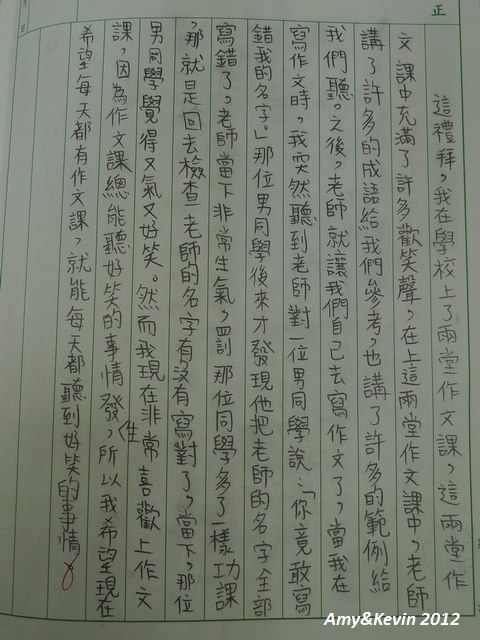 正
這禮拜，我在學校上了兩堂作文課，這兩堂作
文課中充滿了許多歡笑聲，在上這兩堂作文課中，老師
講了許多的成語給我們參考，也講了許多的範例給
我們聽。之後，老師就讓我們自己去寫作文了，當我在
寫作文時，我突然聽到老師對一位男同學說：「你竟敢寫
錯我的名字。」那位男同學後來才發現他把老師的名字全部
寫錯了，老師當下非常生氣，四罰那位同學多了一樣功課
，那就是回去檢查老師的名字有沒有寫對了，當下，那位
男同學覺得又氣又好笑。然而我現在非常喜歡上作文
課，因為作文課總能聽好笑的事情發生，所以我希望現在
希望每天都有作文課，就能每天都聽到好笑的事情。
Amy&Kevin 2012